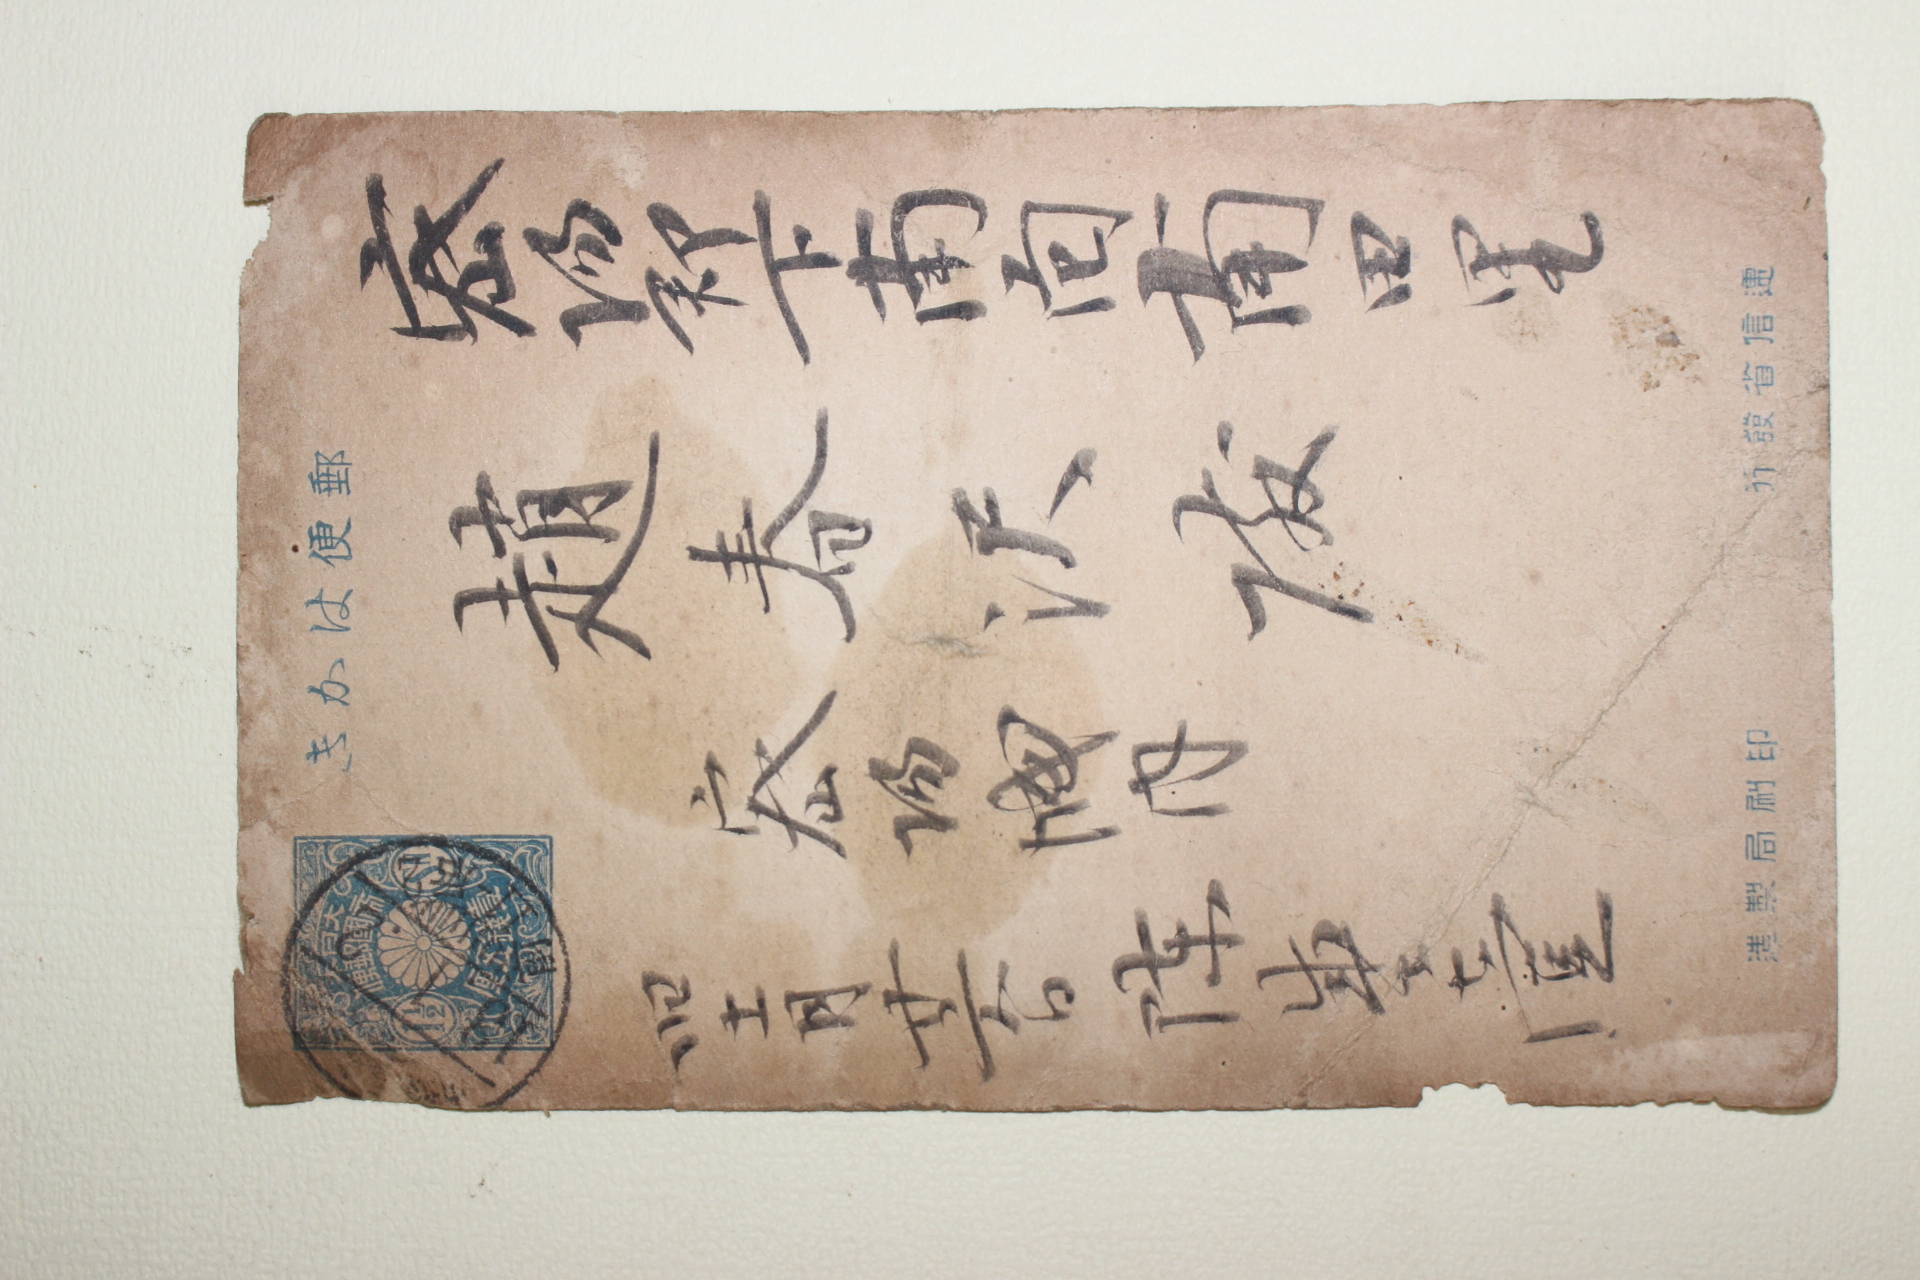 郵便はかき
大日本
帝國郵便
壹錢五厘
密陽郡下南面南田里
趙春沢殿
密陽城内
四十月廿六日
陳
遞信省發行
印刷局製造